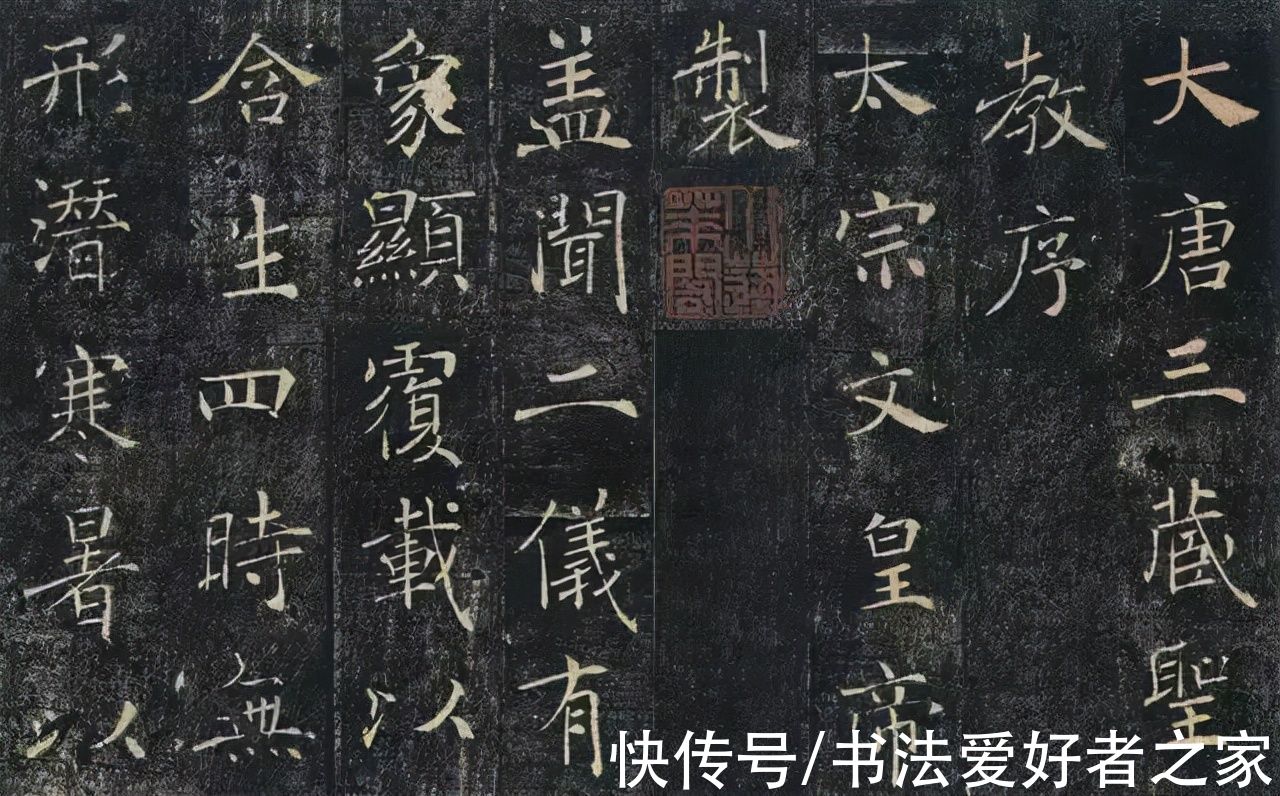 大唐三藏聖
教序
太宗文皇帝
製
盖聞二儀有
象顯覆載以
含生四時無
形潛寒暑以
快传号/书法爱好者之家